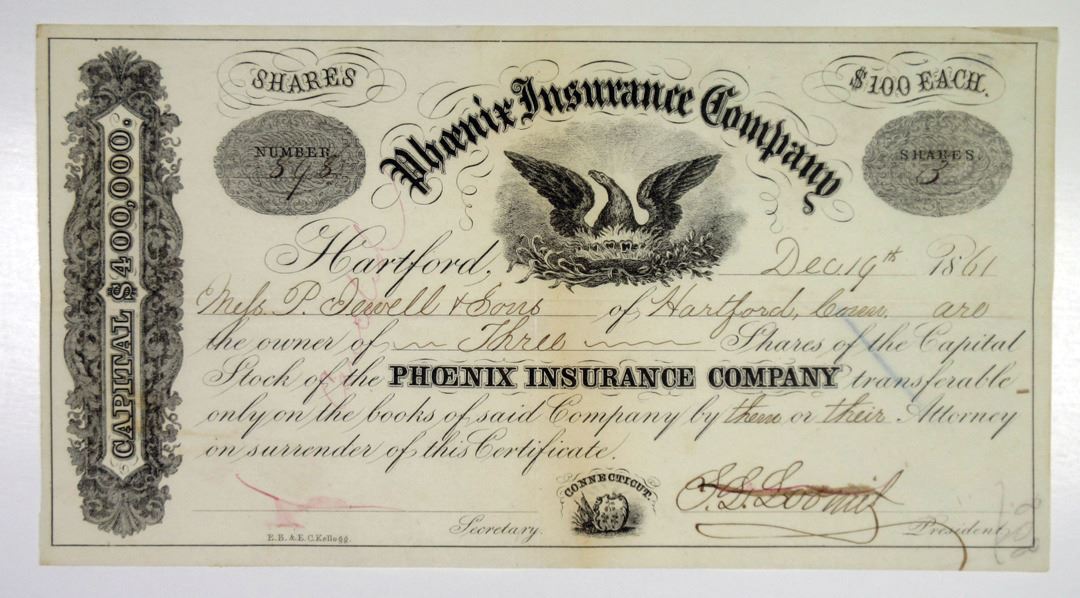 SHARES
$100 EACH.
Phœnix Insurance Company
NUMBER.
595
SHARES.
3
CAPITAL $400,000.
Hartford, Dec 19th 1861
Mess. P. Jewell & Sons of Hartford, Conn. are
the owner of Three Shares of the Capital
Stock of the PHŒNIX INSURANCE COMPANY transferable
only on the books of said Company by them or their Attorney
on surrender of this Certificate.
CONNECTICUT.
S. L. Loomis
Secretary.
President
E. B. & E. C. Kellogg.